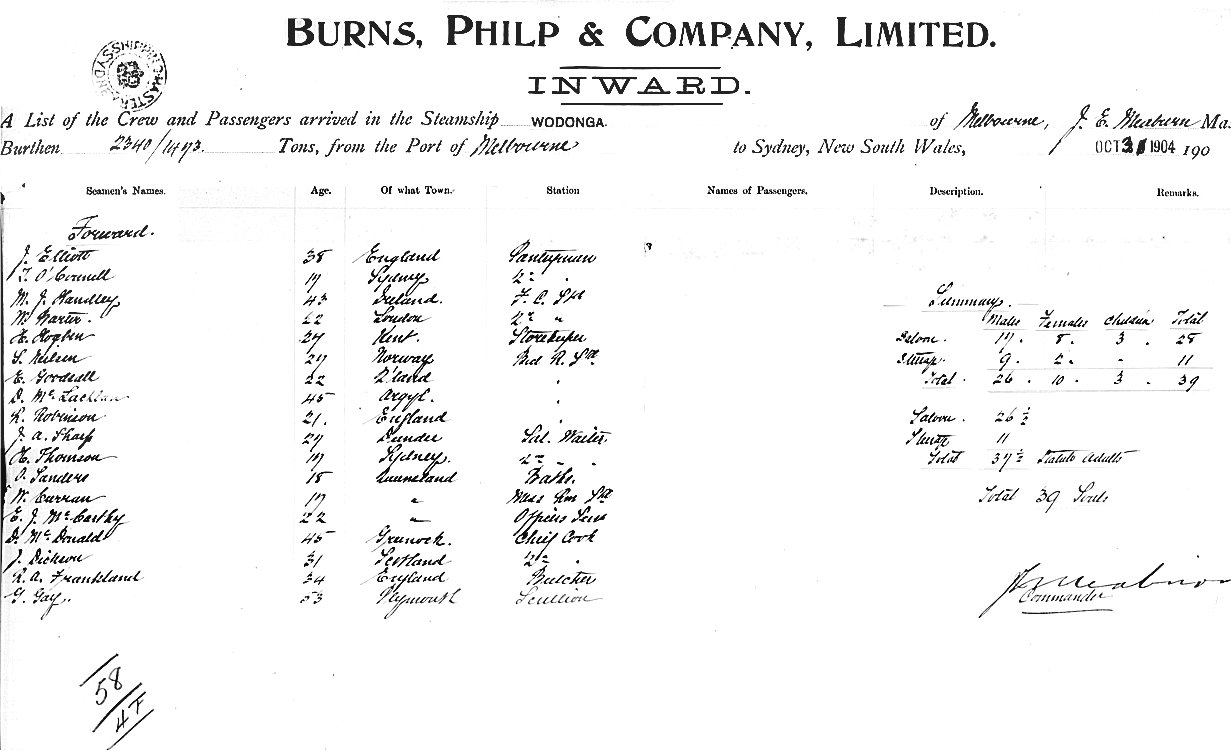 BURNS, PHILP & COMPANY, LIMITED.
INWARD.
A List of the Crew and Passengers arrived in the Steamship WODONGA. of Melbourne, J. E. Meaburn Ma
Burthen 2340/1493. Tons, from the Port of Melbourne to Sydney, New South Wales, OCT 31 1904 190
Seamen's Names. Age. Of what Town. Station Names of Passengers. Description. Remarks.
Forward.
J. Elliott 38 England Pantryman
T. O'Connell 19 Sydney 2nd "
M. J. Handley 43 Ireland. F. C. Std
W. Warter. 22 London 2nd "
H. Hogben 27 Kent. Storekeeper
S. Neilsen 29 Norway Bed R. Std
E. Goodsall 22 Q'land "
D. McLachlan 45 Argyl. "
R. Robinson 21. England "
J. A. Sharp 29 Dundee Sal. Waiter
H. Thomson 19 Sydney. 2nd "
O. Sanders 18 Queensland Baths.
W. Curran 19 " Mess Rm Std
E. J. McCarthy 22 " Officers Serv
D. McDonald 45 Greenock. Chief Cook
J. Dickson 31 Scotland 2nd "
R. A. Frankland 34 England Butcher
G. Gay.. 53 Plymouth Scullion
Summary.
Males Females Children Total
Saloon. 17. 8. 3. 28
Steerage 9. 2. - 11
Total. 26. 10. 3. 39
Saloon. 26 1/2
Steerage 11
Total 37 1/2 Statute Adults
Total 39 Souls
Commander
58/47